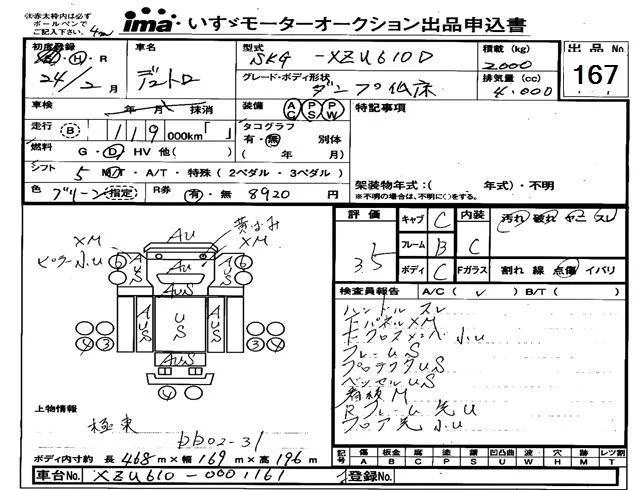 ※赤太枠内は必ず
ボールペンで
ご記入下さい。
ima いすゞモーターオークション出品申込書
初度登録 H・R
24/2月
車名
デュトロ
型式 SKG -XZU610D
グレード・ボディ形状
ダンプ低床
積載(kg)
2000
排気量(cc)
4,000
出品No.
167
車検 年 月 抹消
装備 AC PS PW
特記事項
走行 B 119 000km「 」
タコグラフ
有・無 別体
( 年 月)
燃料 G・D・HV 他( )
シフト 5 M/T・A/T・特殊(2ペダル・3ペダル)
架装物年式:( 年式)・不明
※不明の場合は、不明に○をする。
色 グリーン 指定 R券 有・無 8920 円
評価
3.5
キャブ C
フレーム B
ボディ C
内装 C
汚れ 破れ ヤニ スレ
Fガラス 割れ 線 点傷 イバリ
検査員報告 A/C( ✓ ) B/T( )
ハンドル スレ
EパネルXM
Eクロスメンバー 小U
フレームUS
プロテクタUS
ベッセルUS
看板M
Rフレーム先U
フロア先小U
黄ばみ
XM
XM
ピラー小U
AU
AUS
AUS
AUS
AUS
US
AUS
AUS
6
6
4
3
3
4
4
上物情報
極東
DD02-31
ボディ内寸約 長 468 m×幅 169 m×高 196 m
記号 傷 A 板金 B 腐 C 塗 P 錆 S 凹凸曲 U 波 W 穴 H 跡 M レツ割 T
車台No. XZU610-0001161
登録No.